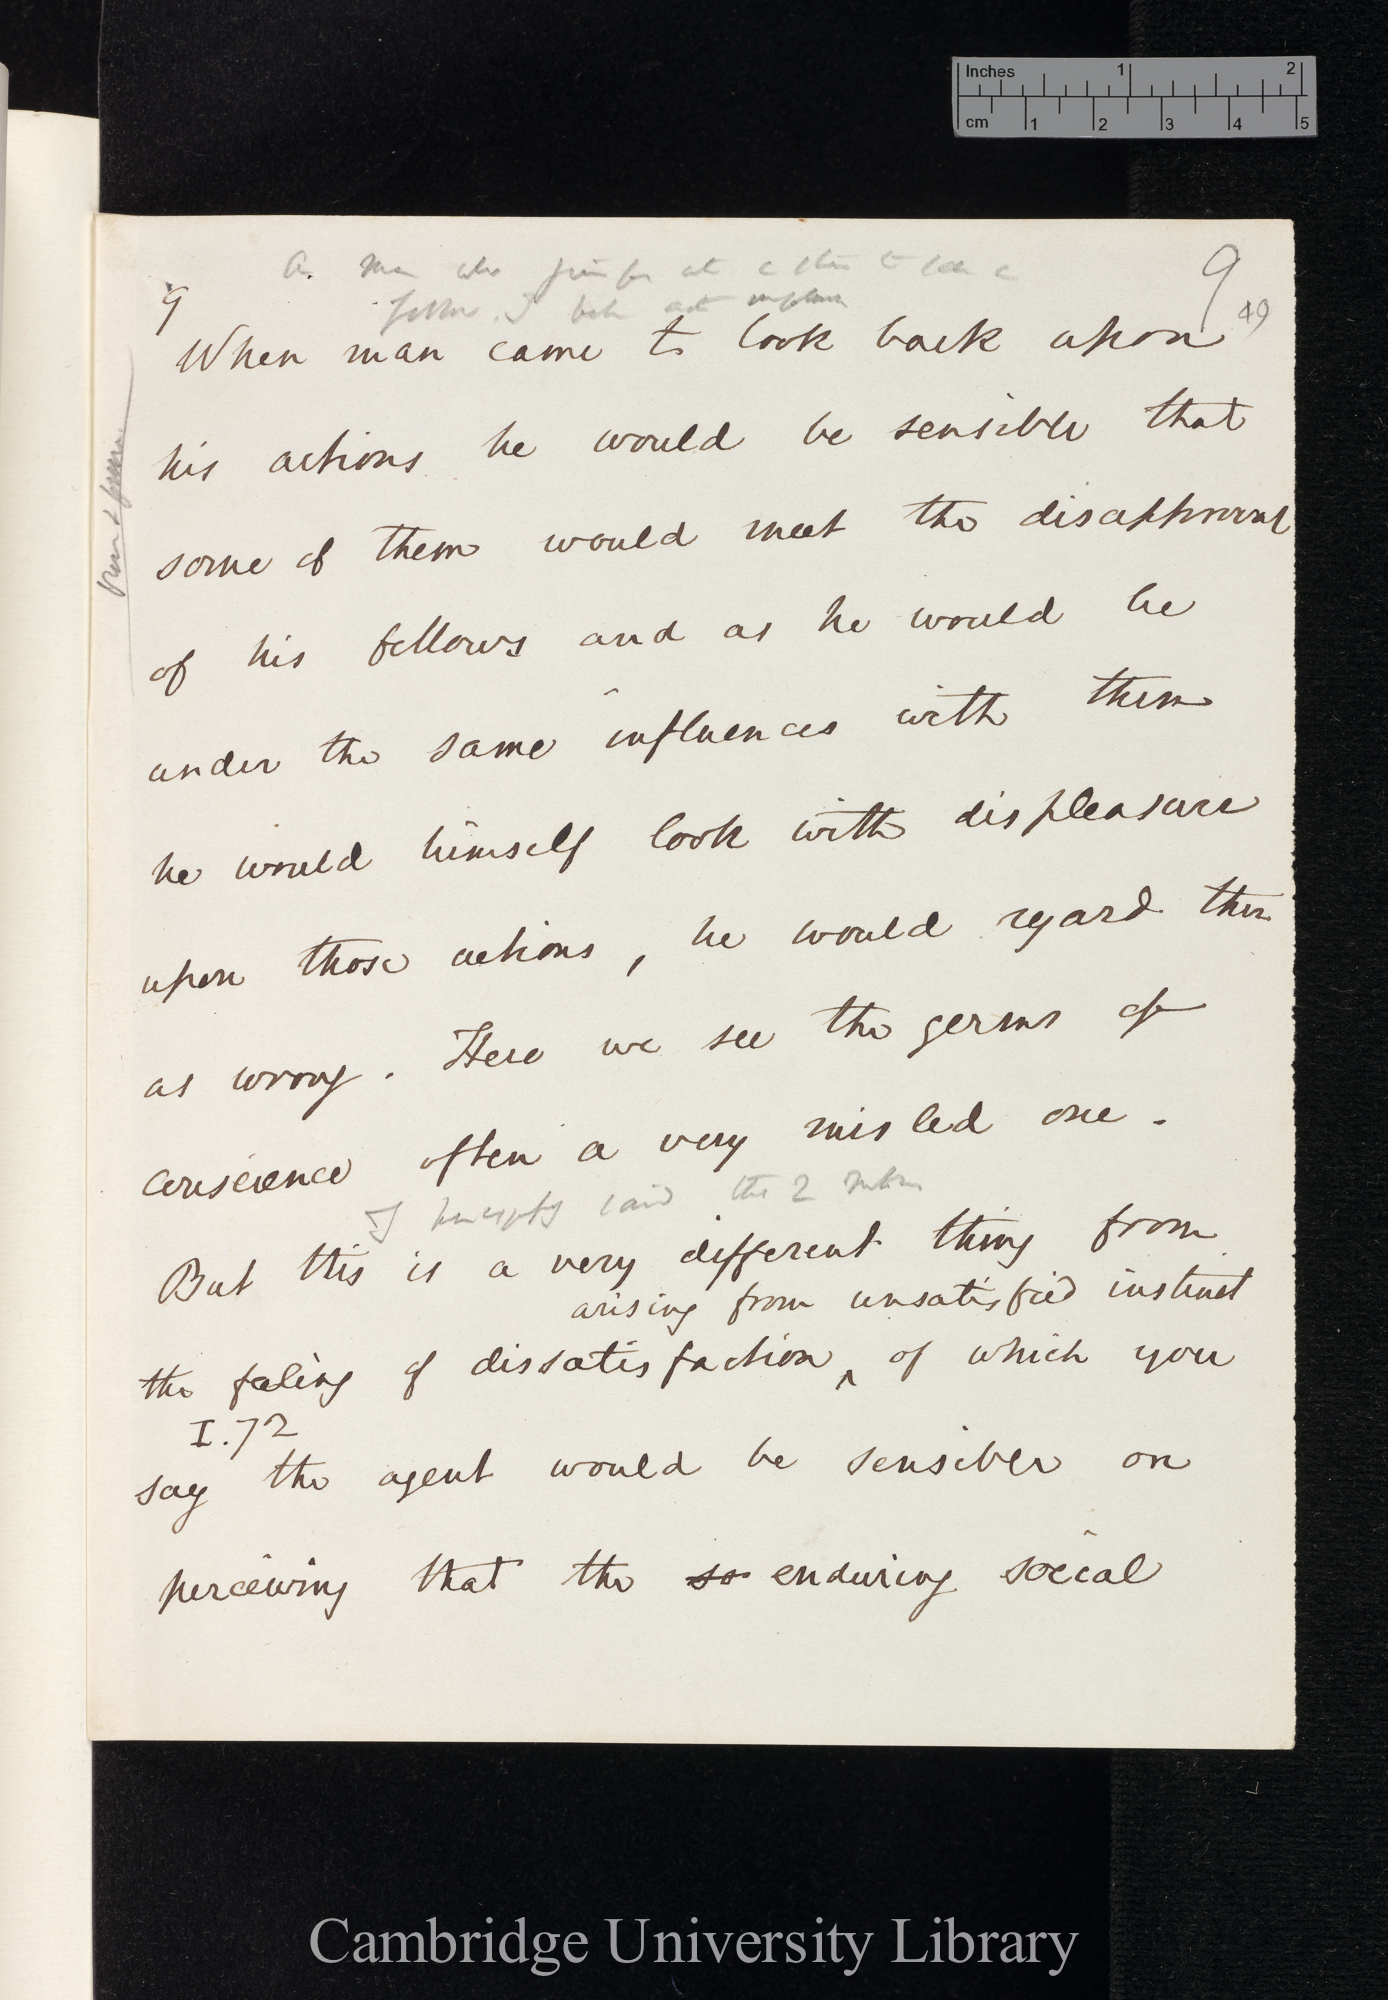 Inches 1 2
cm 1 2 3 4 5
9
9
49
When man came to look back upon
his actions he would be sensible that
some of them would meet the disapproval
of his fellows and as he would be
under the same influences with them
he would himself look with displeasure
upon those actions, he would regard them
as wrong. Here we see the germs of
conscience often a very misled one.
the 2
But this is a very different thing from
arising from unsatisfied instinct
the feeling of dissatisfaction ‸ of which you
I. 72
say the agent would be sensible on
perceiving that the so enduring social
Cambridge University Library